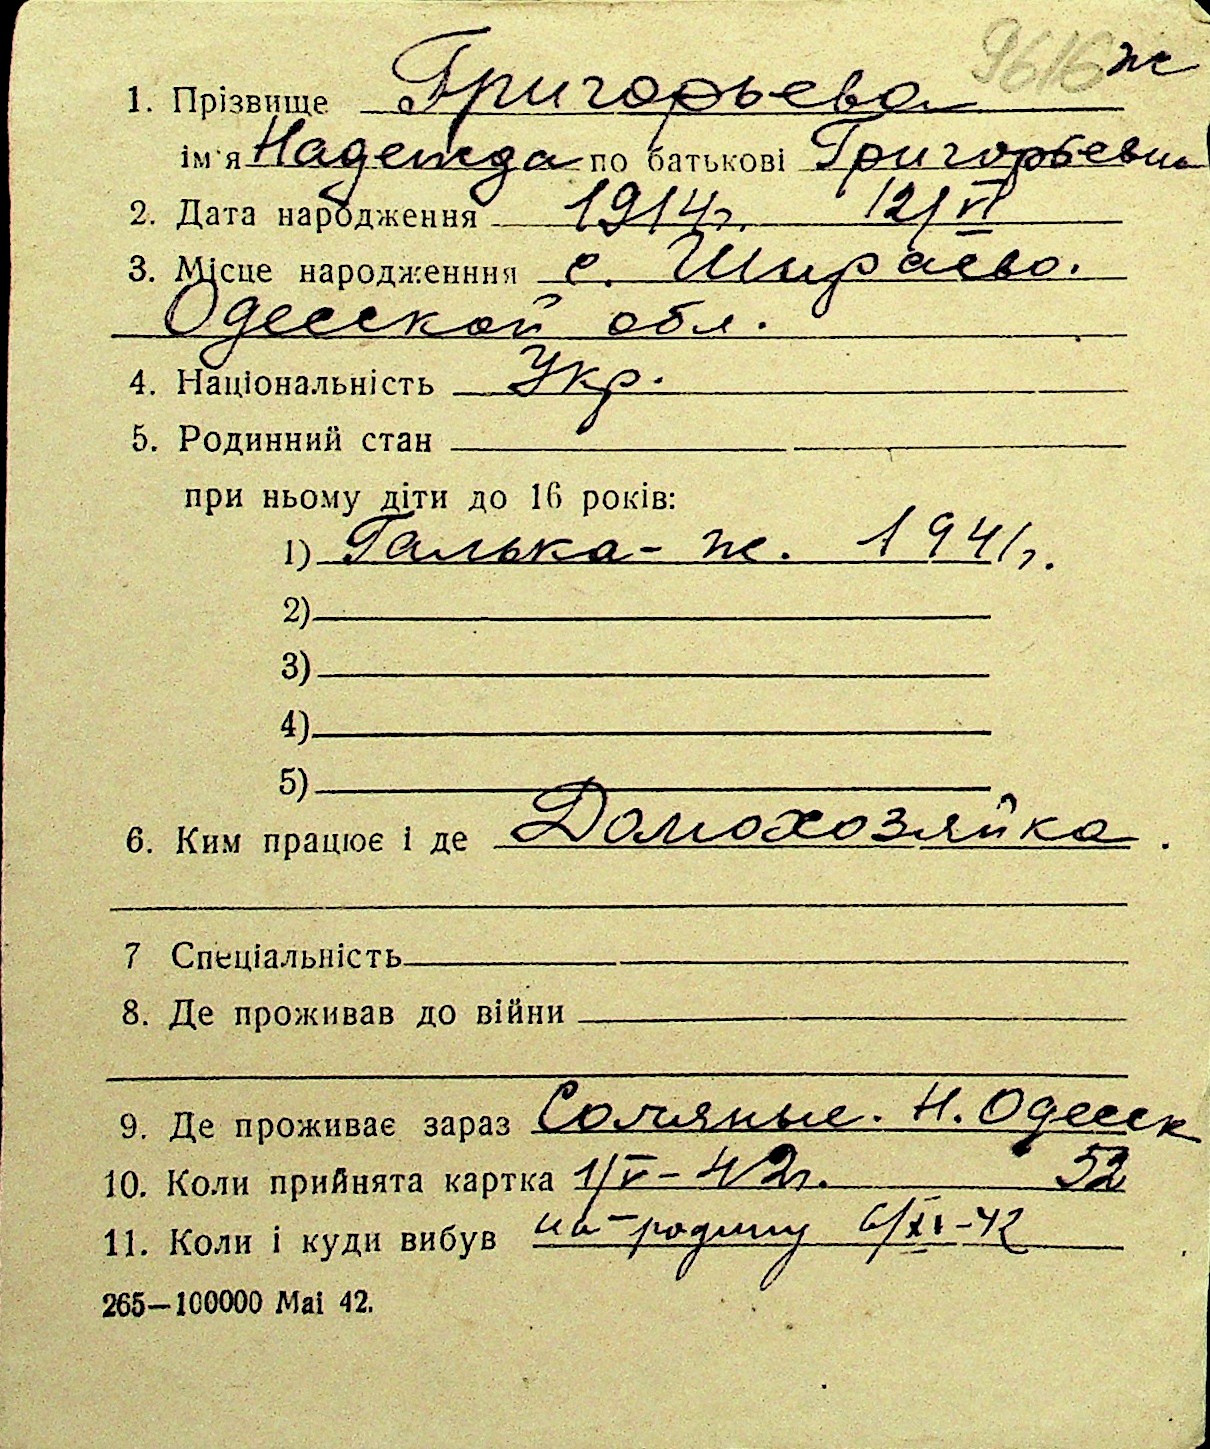 9616 ж
1. Прізвище Григорьева
ім'я Надежда по батькові Григорьевна
2. Дата народження 1914г. 12/VI
3. Місце народженння с. Ширяево.
Одесской обл.
4. Національність Укр.
5. Родинний стан
при ньому діти до 16 років:
1) Галька - ж. 1941г.
2)
3)
4)
5)
6. Ким працює і де Домохозяйка.
7 Спеціальність
8. Де проживав до війни
9. Де проживає зараз Соляные. Н. Одесск
10. Коли прийнята картка 1/V - 42г. 52
11. Коли і куди вибув на родину 6/XI-42
265—100000 Mai 42.